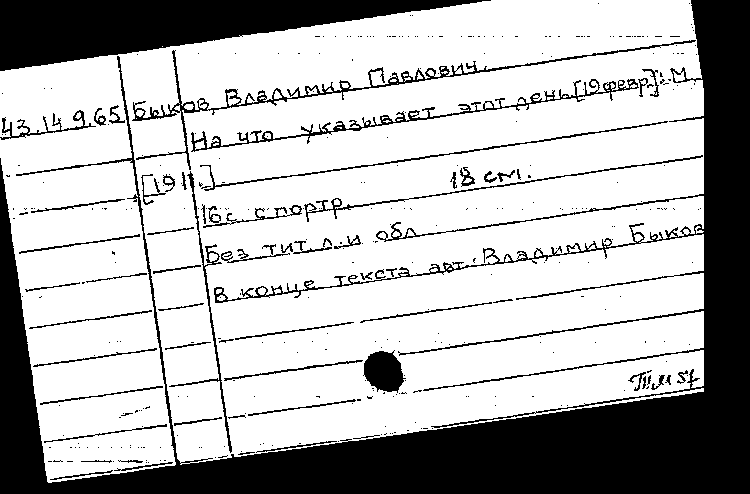 43.14.9.65 Быков, Владимир Павлович.
На что указывает этот день [19 февр]: М.
[1911.]
16с. с портр. 18 см.
Без тит. л. и обл
В конце текста авт.: Владимир Быков